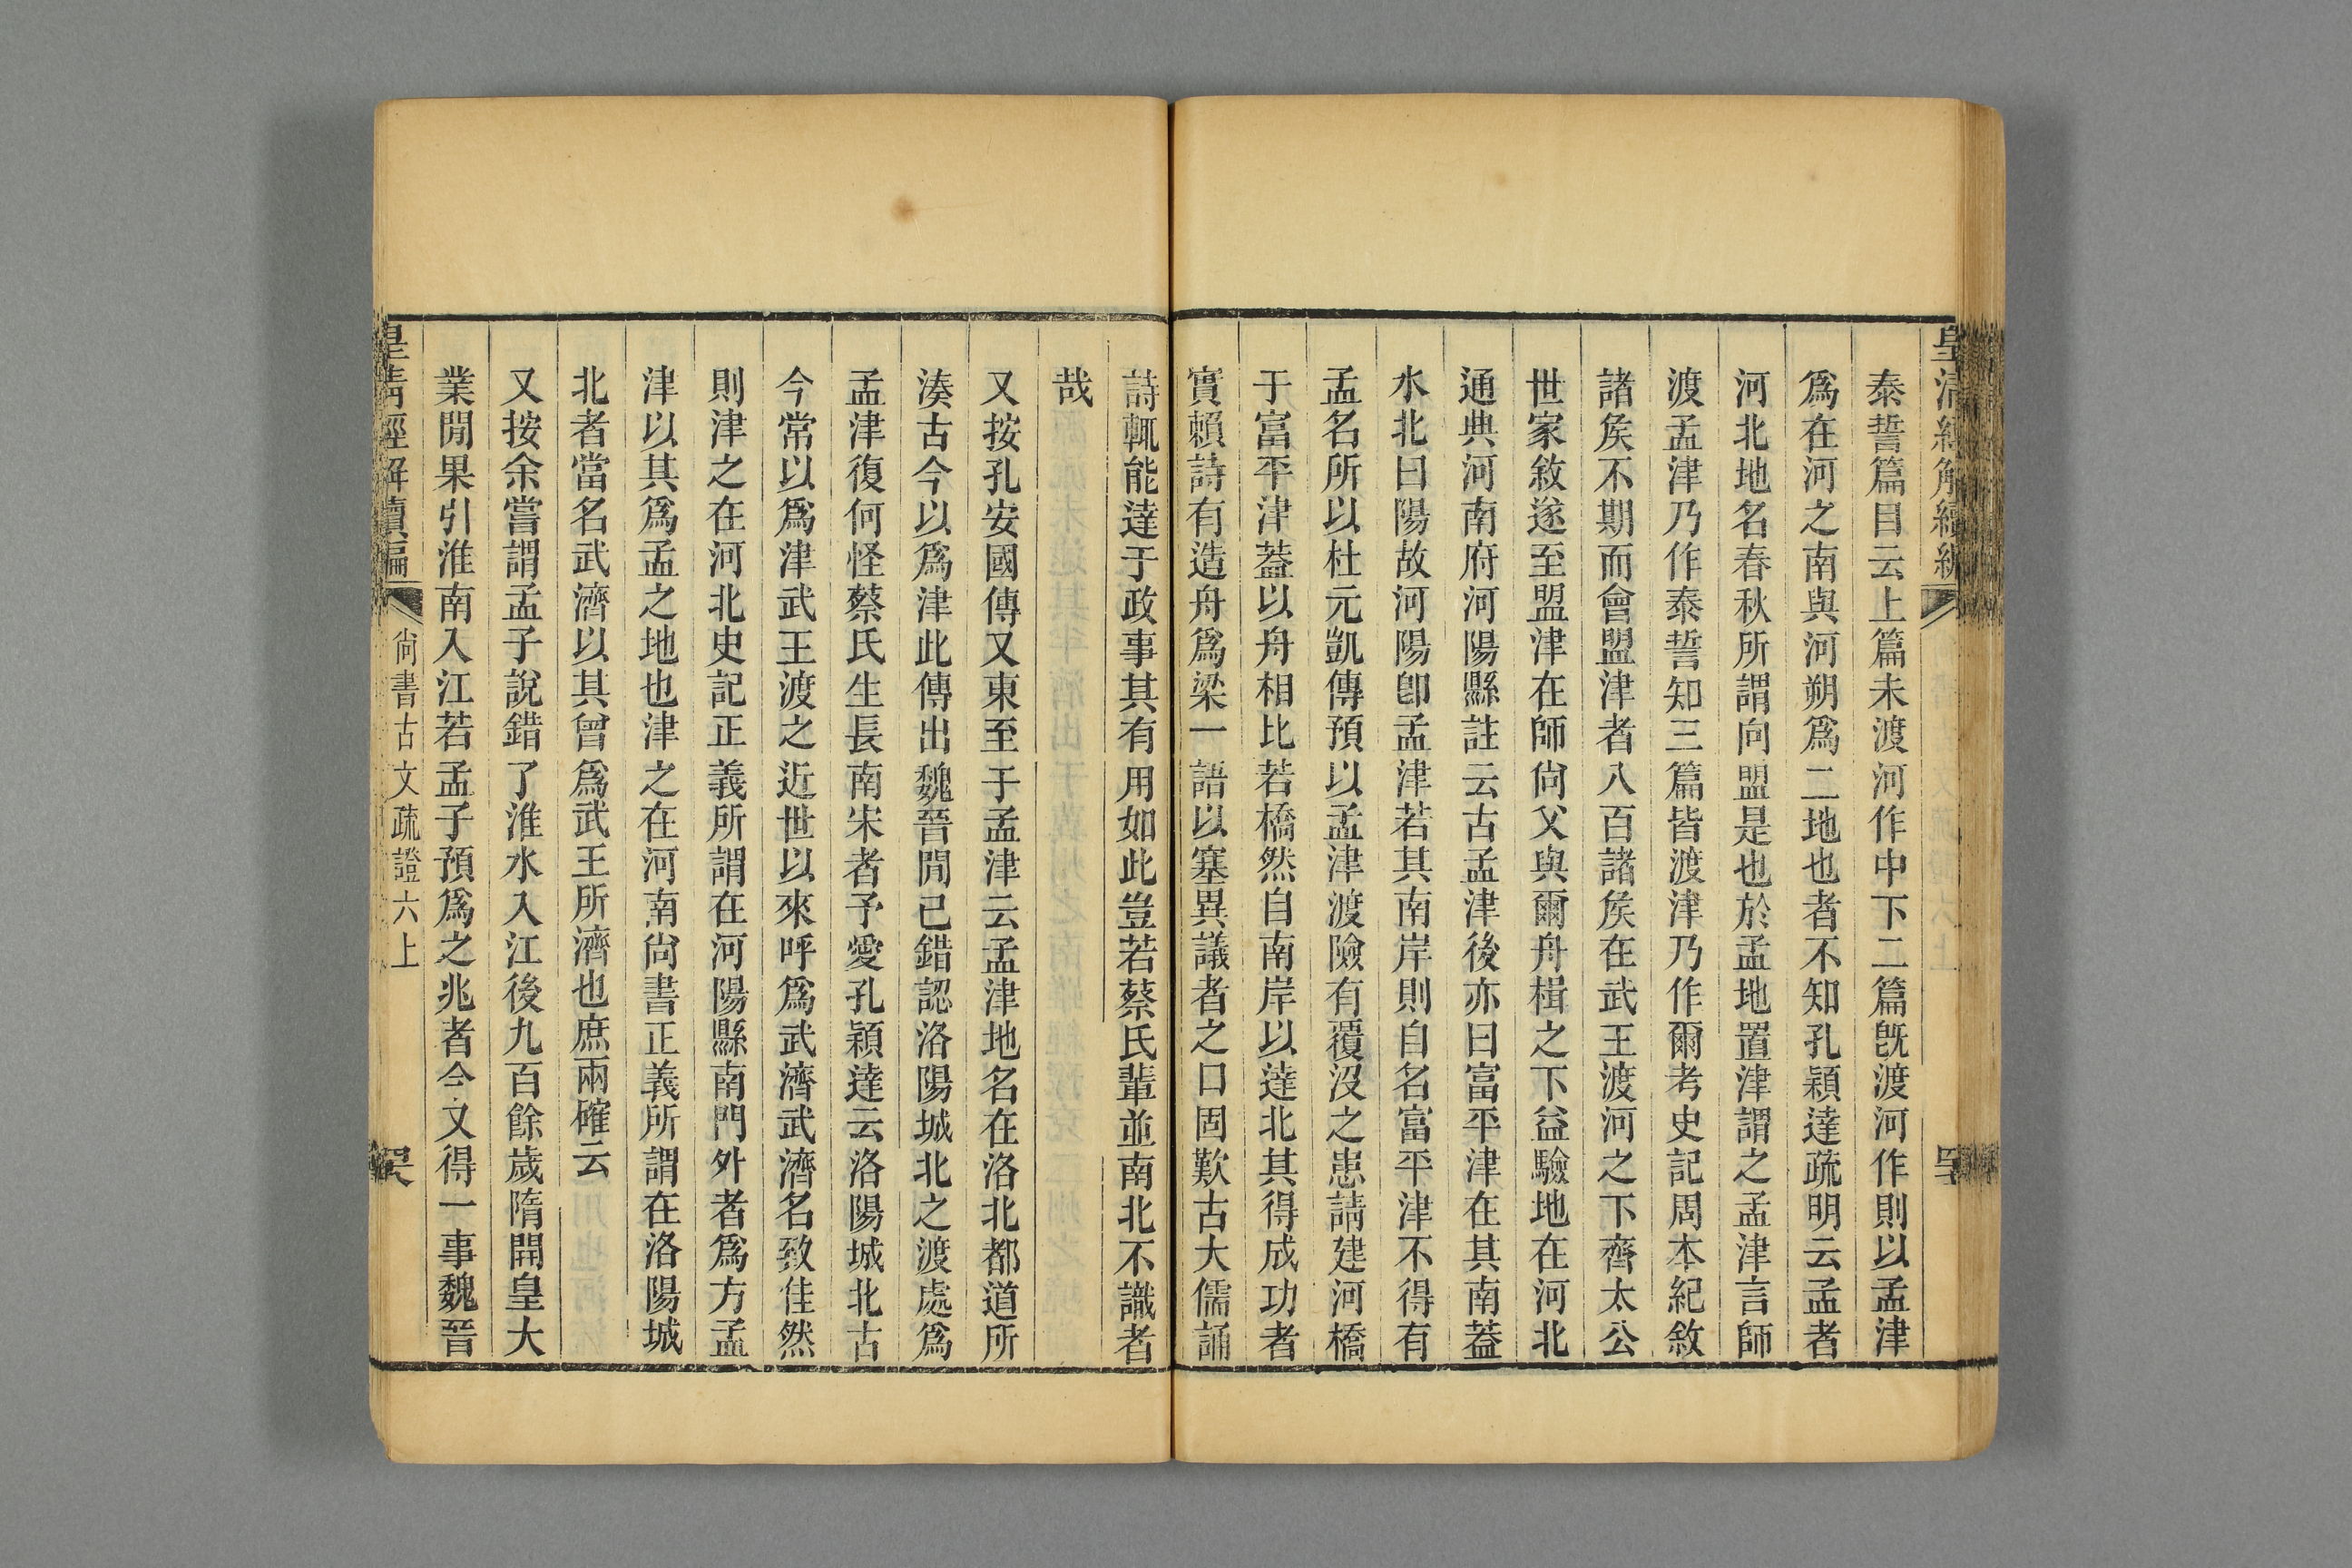 皇清經解續編
泰誓篇目云上篇未渡河作中下二篇旣渡河作則以孟津
爲在河之南與河朔爲二地也者不知孔穎達疏明云孟者
河北地名春秋所謂向盟是也於孟地置津謂之孟津言師
渡孟津乃作泰誓知三篇皆渡津乃作爾考史記周本紀敘
諸矦不期而會盟津者八百諸矦在武王渡河之下齊太公
世家敘遂至盟津在師尙父與爾舟楫之下益驗地在河北
通典河南府河陽縣註云古孟津後亦曰富平津在其南葢
水北曰陽故河陽卽孟津若其南岸則自名富平津不得有
孟名所以杜元凱傳預以孟津渡險有覆沒之患請建河橋
于富平津葢以舟相比若橋然自南岸以達北其得成功者
實賴詩有造舟爲梁一語以塞異議者之口固歎古大儒誦
詩輒能達于政事其有用如此豈若蔡氏輩並南北不識者
哉
又按孔安國傳又東至于孟津云孟津地名在洛北都道所
湊古今以爲津此傳出魏晉閒已錯認洛陽城北之渡處爲
孟津復何怪蔡氏生長南宋者予愛孔穎達云洛陽城北古
今常以爲津武王渡之近世以來呼爲武濟武濟名致佳然
則津之在河北史記正義所謂在河陽縣南門外者爲方孟
津以其爲孟之地也津之在河南尙書正義所謂在洛陽城
北者當名武濟以其曾爲武王所濟也庶兩確云
又按余嘗謂孟子說錯了淮水入江後九百餘歲隋開皇大
業閒果引淮南入江若孟子預爲之兆者今又得一事魏晉
皇淸經解續編
尙書古文疏證六上